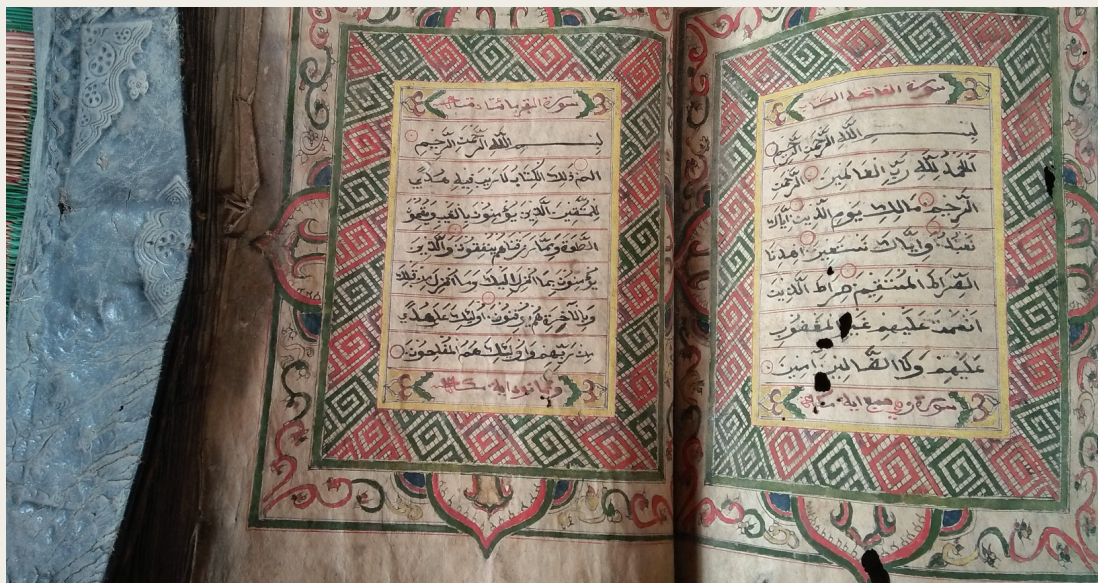 سورة الفاتحة الكتاب
بِسْمِ اللَّهِ الرَّحْمَنِ الرَّحِيمِ
اَلْحَمْدُ لِلَّهِ رَبِّ الْعَالَمِينَ الرَّحْمَنِ
الرَّحِيمِ مَالِكِ يَوْمِ الدِّينِ اِيَّاكَ
نَعْبُدُ وَاِيَّاكَ نَسْتَعِينُ اِهْدِنَا
الصِّرَاطَ الْمُسْتَقِيمَ صِرَاطَ الَّذِينَ
اَنْعَمْتَ عَلَيْهِمْ غَيْرِ الْمَغْضُوبِ
عَلَيْهِمْ وَلَا الضَّالِّينَ آمِينَ
سورة سبع اية
سورة البقرة
بِسْمِ اللَّهِ الرَّحْمَنِ الرَّحِيمِ
الم ذَلِكَ الْكِتَابُ لَا رَيْبَ فِيهِ هُدًى
لِلْمُتَّقِينَ الَّذِينَ يُؤْمِنُونَ بِالْغَيْبِ وَيُقِيمُونَ
الصَّلَوةَ وَمِمَّا رَزَقْنَاهُمْ يُنْفِقُونَ وَالَّذِينَ
يُؤْمِنُونَ بِمَا اُنْزِلَ اِلَيْكَ وَمَا اُنْزِلَ مِنْ قَبْلِكَ
وَبِالْآخِرَةِ هُمْ يُوقِنُونَ اُولَئِكَ عَلَى هُدًى
مِنْ رَبِّهِمْ وَاُولَئِكَ هُمُ الْمُفْلِحُونَ